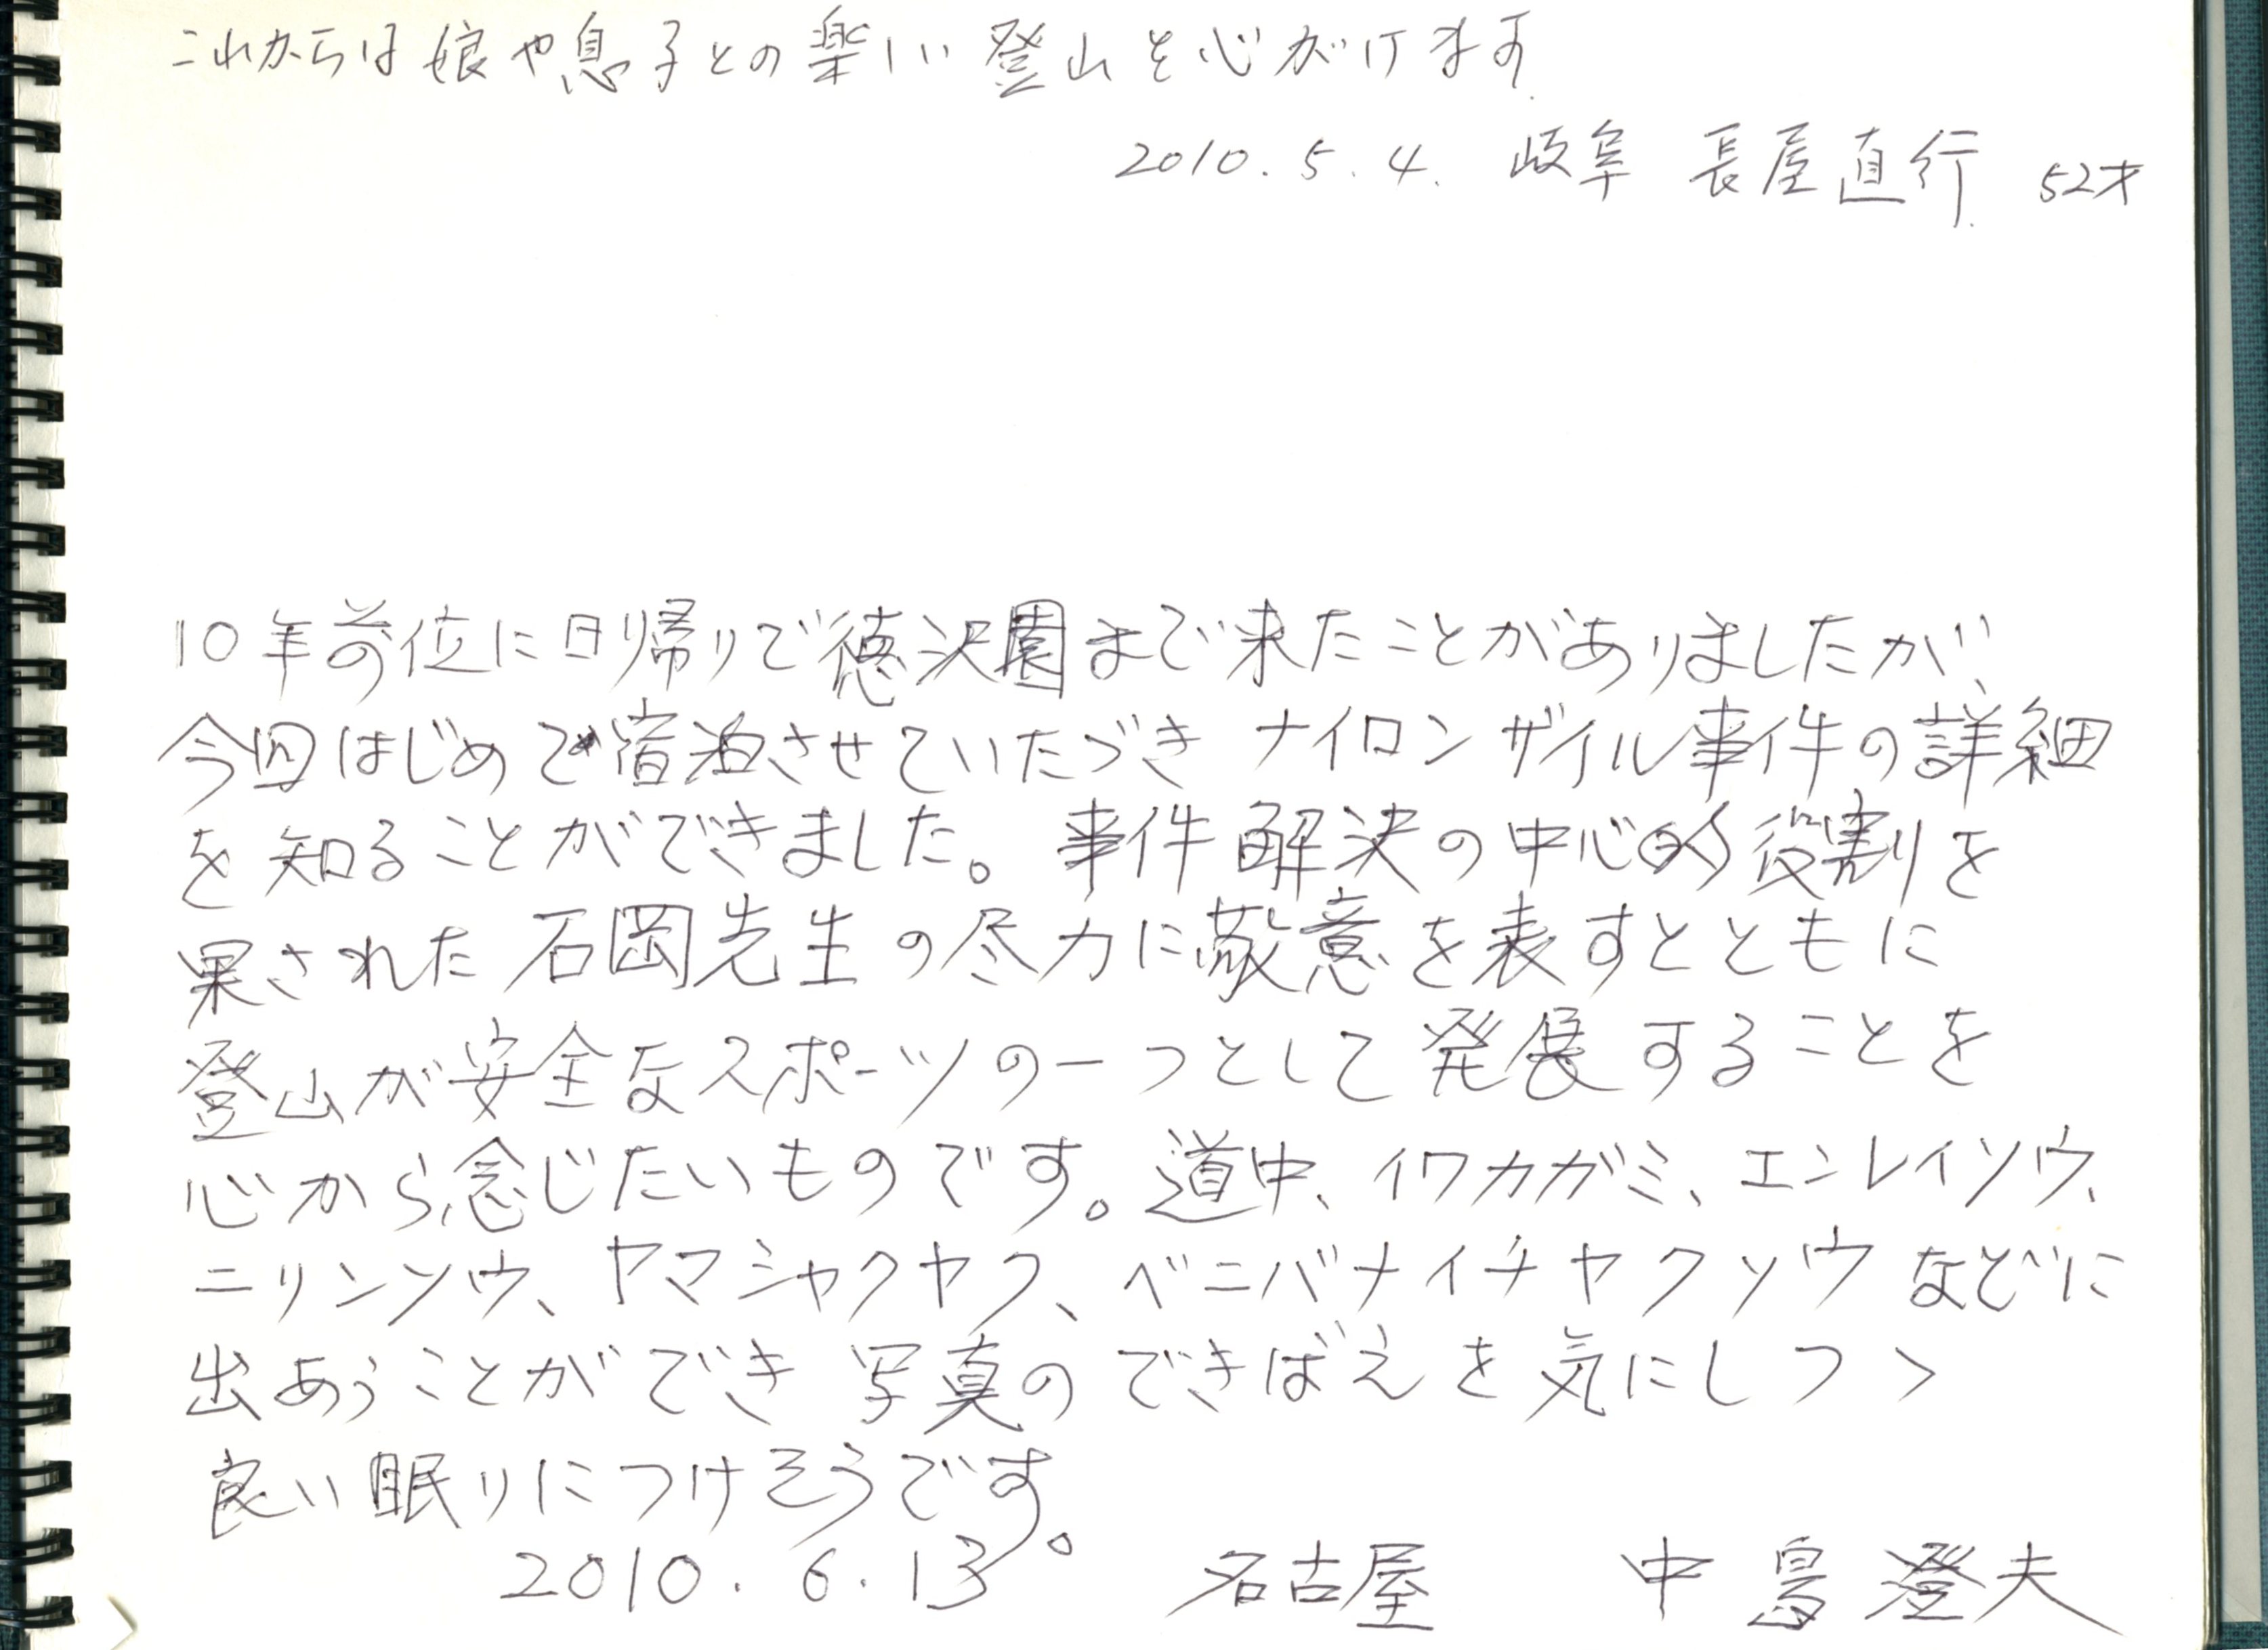 これからは娘や息子との楽しい登山を心がけます
2010.5.4. 岐阜 長屋直行 52才
10年前位に日帰りで徳沢園まで来たことがありましたが、
今回はじめて宿泊させていたゞき ナイロンザイル事件の詳細
を知ることができました。事件解決の中心的役割を
果された石岡先生の尽力に敬意を表すとともに
登山が安全なスポーツの一つとして発展することを
心から念じたいものです。道中、イワカガミ、エンレイソウ、
ニリンソウ、ヤマシャクヤク、ベニバナイチヤクソウなどに
出あうことができ 写真のできばえを気にしつゝ
良い眠りにつけそうです。
2010.6.13 名古屋 中島澄夫